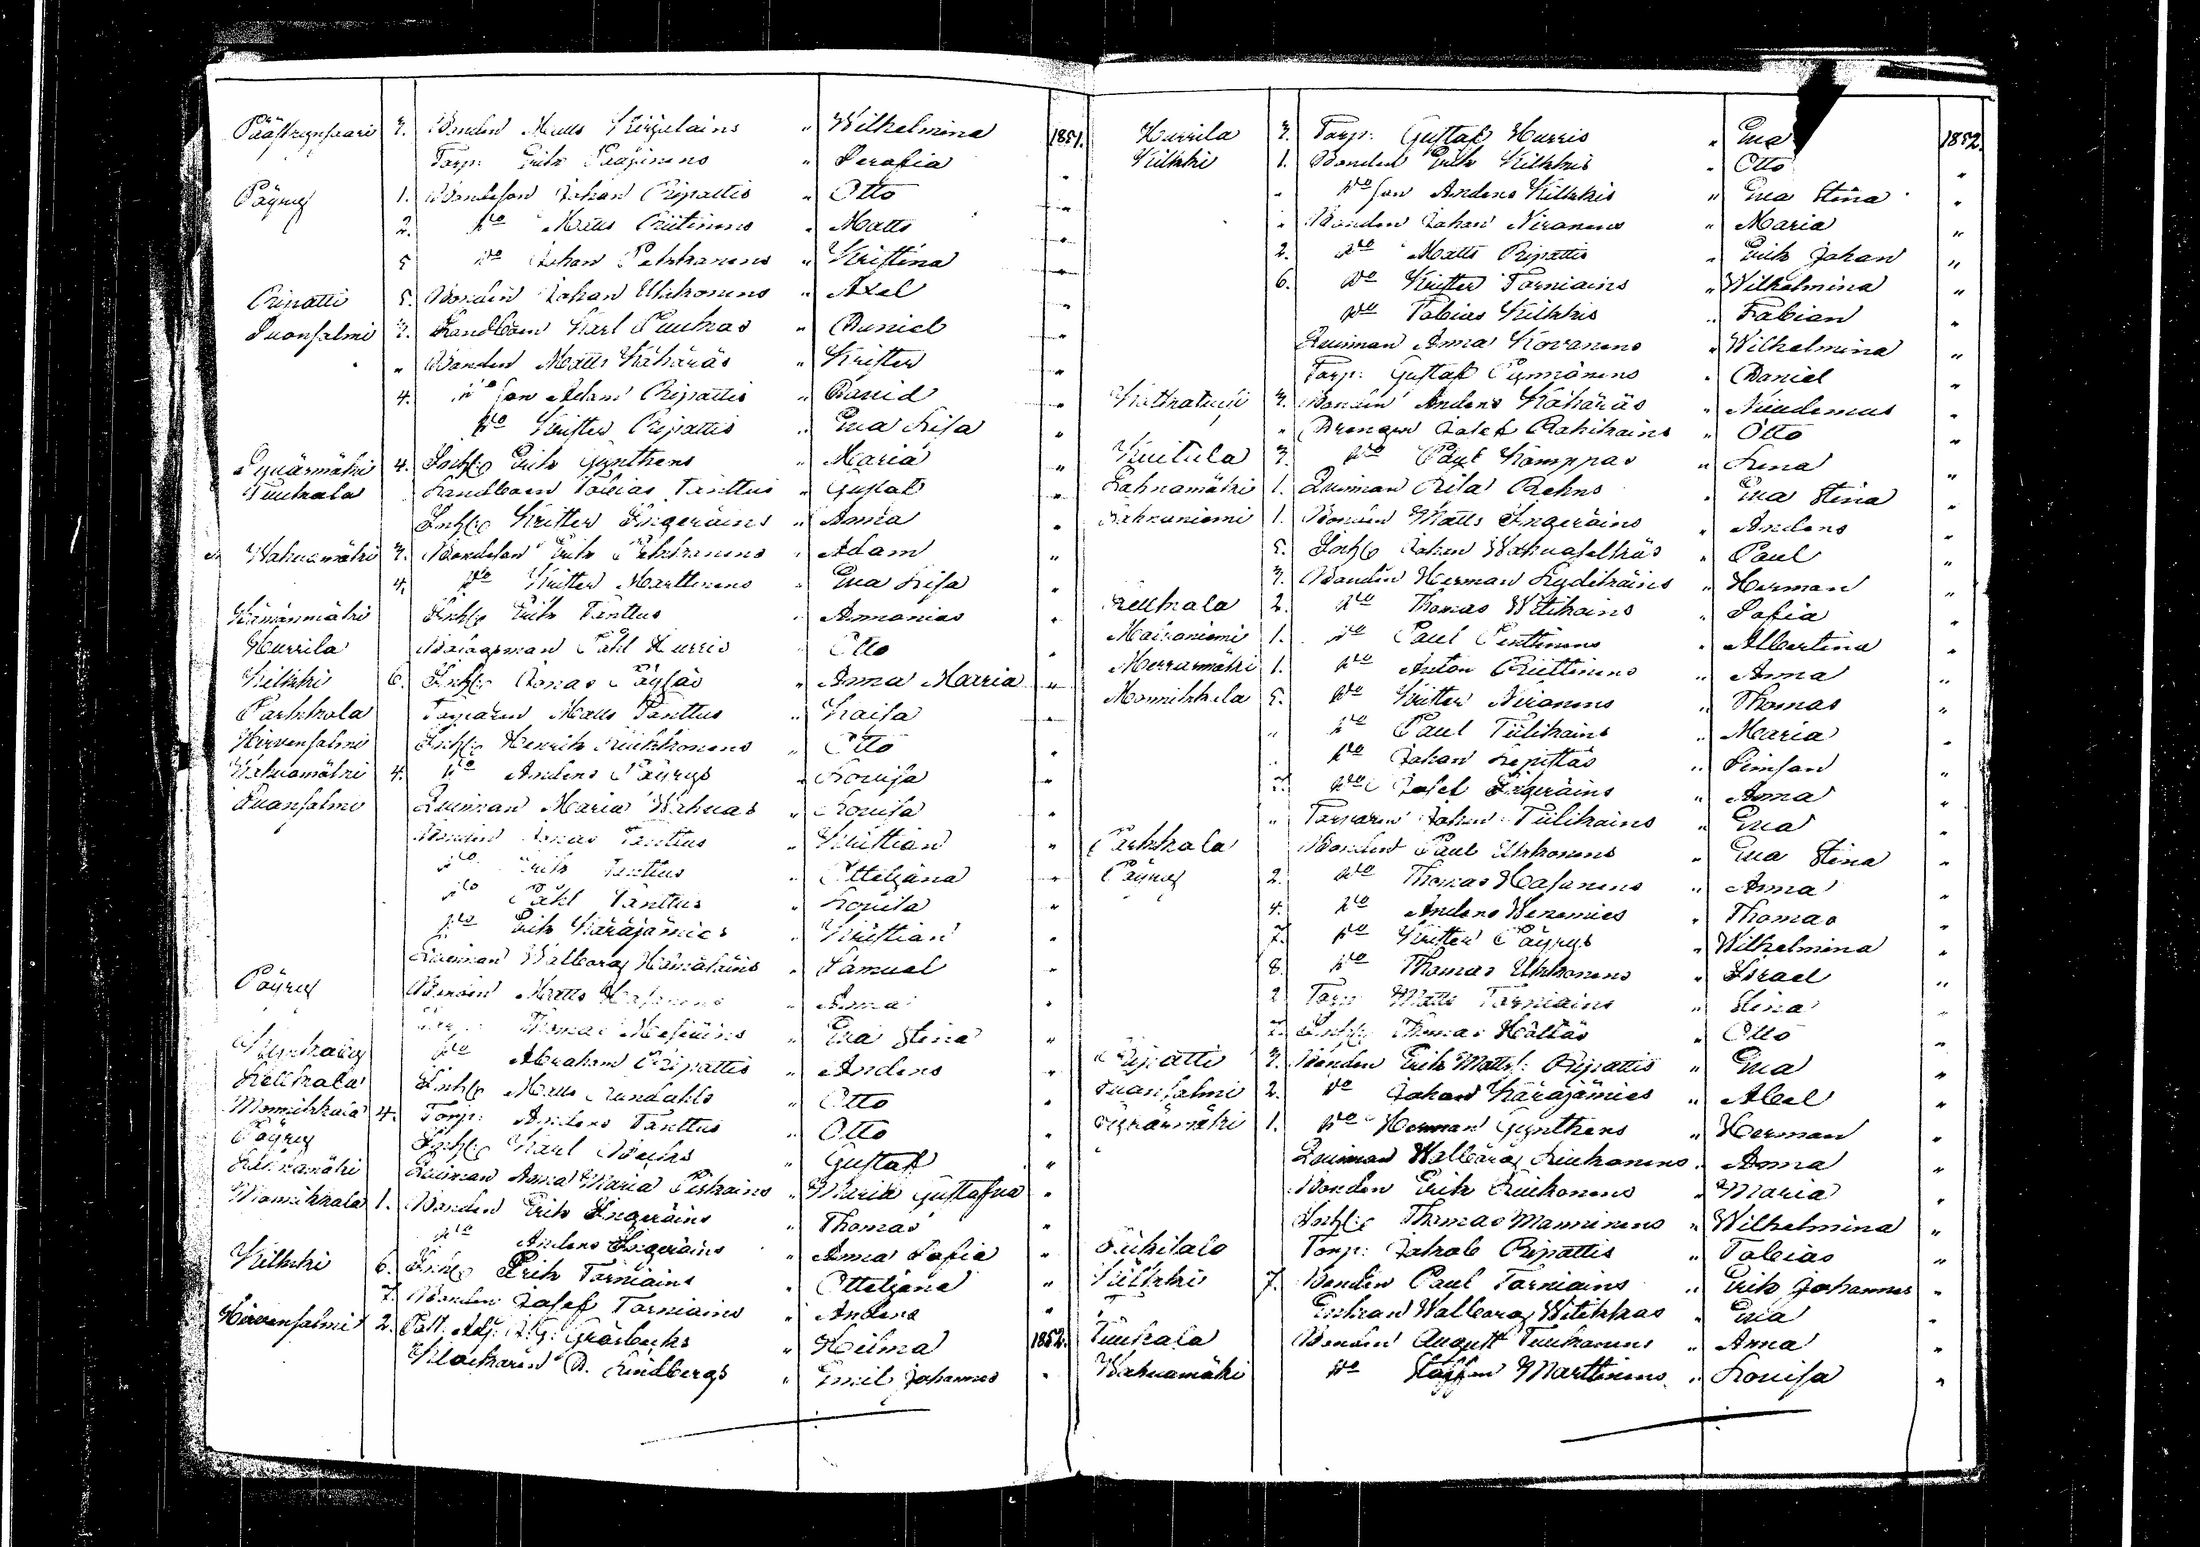 Pääskynsaari 3. Bonden Matts Kirjalains " Wilhelmina 1851.
Torp: Erik Paajanens " Serafia "
Päyry 1. Bondeson Johan Ripattis " Otto "
2. D:o Matts Riitinens " Matts "
5 D:o Johan Pekkanens " Kristina "
Ripatti 5. Bonden Johan Ukkonens " Axel "
Suonsalmi 3. Landboen Karl Puukas " Daniel "
" Bonden Matts Kähäräs " Krister "
4. D:o son Adam Ripattis " David "
D:o Krister Ripattis " Eva Lisa "
Syvärmäki 4. Inh:s Erik Gynthers " Maria "
Tuukala Landboen Tobias Tanttus " Gustaf "
Inh:s Krister Ingeräins " Anna "
Wahvamäki 3. Bondeson Erik Pekkanens " Adam "
4. D:o Krister Marttinens " Eva Lisa "
Hämänmäki Inh:s Erik Tanttus " Annanias "
Hurrila Pahl Hurris " Otto "
Kilkki 6. Inh:s Jonas Päyläs " Anna Maria "
Parkkola Torparen Matts Tanttus " Kaisa "
Hirvensalmi Inh:s Henrik Liukkonens " Otto "
Wahvamäki 4. D:o Anders Päyrys " Lovisa "
Suonsalmi Qvinnan Maria Wahvas " Lovisa "
Bonden Jonas Tanttus " Kristian "
D:o Erik Tanttus " Ottiliana "
D:o Pahl Tanttus " Lovisa "
D:o Erik Käräjämies " Kristian "
Qvinnan Walborg Hämäläins " Samuel "
Päyry Bonden Matts Hasanens " Anna "
Thomas " Eva Stina "
D:o Abraham Ripattis " Anders "
Lelkkala Inh:s Matts Sundahls " Otto "
Monnikkala 4. Torp: Anders Tanttus " Otto "
Päyry Inh:s Karl " Gustaf "
Lahnamäki Qvinnan Anna Maria Piskains " Maria Gustafva "
Monnikkala 1. Bonden Erik Ingeräins " Thomas "
D:o Anders Ingeräins " Anna Sofia "
Kilkki 6. Inh:s Erik Torniains " Ottiliana "
7. Bonden Josef Torniains " Anders "
Hirvensalmi 2. Past: Adj: A. G: Gråsbecks " Hilma 1852.
Klockaren D. Lindbergs " Emil Johannes "
Hurrila 3. Torp: Gustaf Hurris " Eva 1852.
Kilkki 1. Bonden Erik Kilkkis " Otto "
" D:o son Anders Kilkkis " Eva Stina "
" Bonden Johan Niranens " Maria "
2. D:o Matts Ripattis " Erik Johan "
6. D:o Krister Torniains " Wilhelmina "
D:o Tobias Kilkkis " Fabian "
Qvinnan Anna Kovanens " Wilhelmina "
Torp: Gustaf Pynnönens " Daniel "
3. Bonden Anders Kähäräs " Nicodemus "
" Drängen Josef Rahikains " Otto "
Kuitula 3. D:o Paul Kamppas " Lena "
Lahnamäki 1. Qvinnan Rita Rehns " Eva Stina "
Lahnaniemi 1. Bonden Matts Ingeräins " Anders "
5. Inh:s Johan Wahvaselkäs " Paul "
3. Bonden Herman Lydikäins " Herman "
Lelkkala 2. D:o Thomas Witikains " Sofia "
Maivaniemi 1. D:o Paul Penttinens " Albertina "
Merrasmäki 1. D:o Anton Riittinens " Anna "
Monnikkala 5. D:o Krister Niranens " Thomas "
" D:o Paul Tiilikains " Maria "
" D:o Johan Lepistäs " Simson "
7. D:o Josef Ingeräins " Anna "
" Torparen Johan Tiilikains " Eva "
Parkkala Bonden Paul Ukkonens " Eva Stina "
Päyry 2. D:o Thomas Hasanens " Anna "
4. D:o Anders Wenemies " Thomas "
7. D:o Krister Päyrys " Wilhelmina "
8. D:o Thomas Ukkonens " Israel "
2 Torp: Matts Torniains " Stina "
7. Inh:s Thomas Hältäs " Otto "
Ripatti 3. Bonden Erik Matts: Ripattis " Eva "
Suonsalmi 2. D:o Johan Käräjämies " Abel "
Syvärmäki 1. D:o Herman Gynthers " Herman "
" Qvinnan Walborg Liukonens " Anna "
Bonden Erik Liukonens " Maria "
Inh:s Thomas Manninens " Wilhelmina "
Torp: Jakob Ripattis " Tobias "
Kilkki 7. Bonden Paul Torniains " Erik Johannes "
Enkan Walborg Witikkas " Eva "
Tuukala Bonden August Tuukanens " Anna "
Wahvamäki D:o Staffan Marttinens " Lovisa "